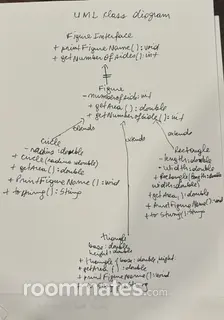 UML class diagram
Figure Interface
+ printFigureName(): void
+ getNumberofsides(): int
Figure
- numberofside: int
+ getArea(): double
+ getNumberofside(): int
extends
extends
extends
Circle
- radius: double
+ circle(radius: double)
+ getArea(): double
+ PrintFigureName(): void
+ toString(): String
Rectangle
- length: double
- width: double
+ Rectangle(length: double,
width: double)
+ getArea(): double
+ printFigureName(): void
+ toString(): String
triangle
base: double
height: double
+ triangle(base: double,
+ getArea(): double
+ printFigureName(): void
roommates.com